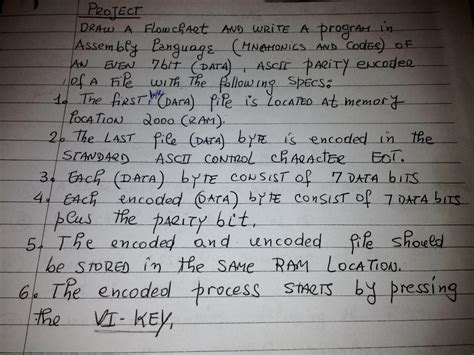 PROJECT
DRAW A FLOWCHART AND WRITE A program in
Assembly Language (MNEMONICS AND CODES) OF
AN EVEN 7bit (DATA), ASCII PARITY encoder
of A File with The following SPECS:
1. The first byte (DATA) file is LOCATED AT memory
LOCATION 2000 (RAM).
2. The LAST file (DATA) byte is encoded in the
STANDARD ASCII CONTROL CHARACTER EOT.
3. EACH (DATA) byte CONSIST OF 7 DATA bits
4. EACH encoded (DATA) byte CONSIST OF 7 DATA bits
plus the PARITY bit.
5. The encoded and uncoded file should
be STORED in the SAME RAM LOCATION.
6. The encoded process STARTS by pressing
the VI-KEY.